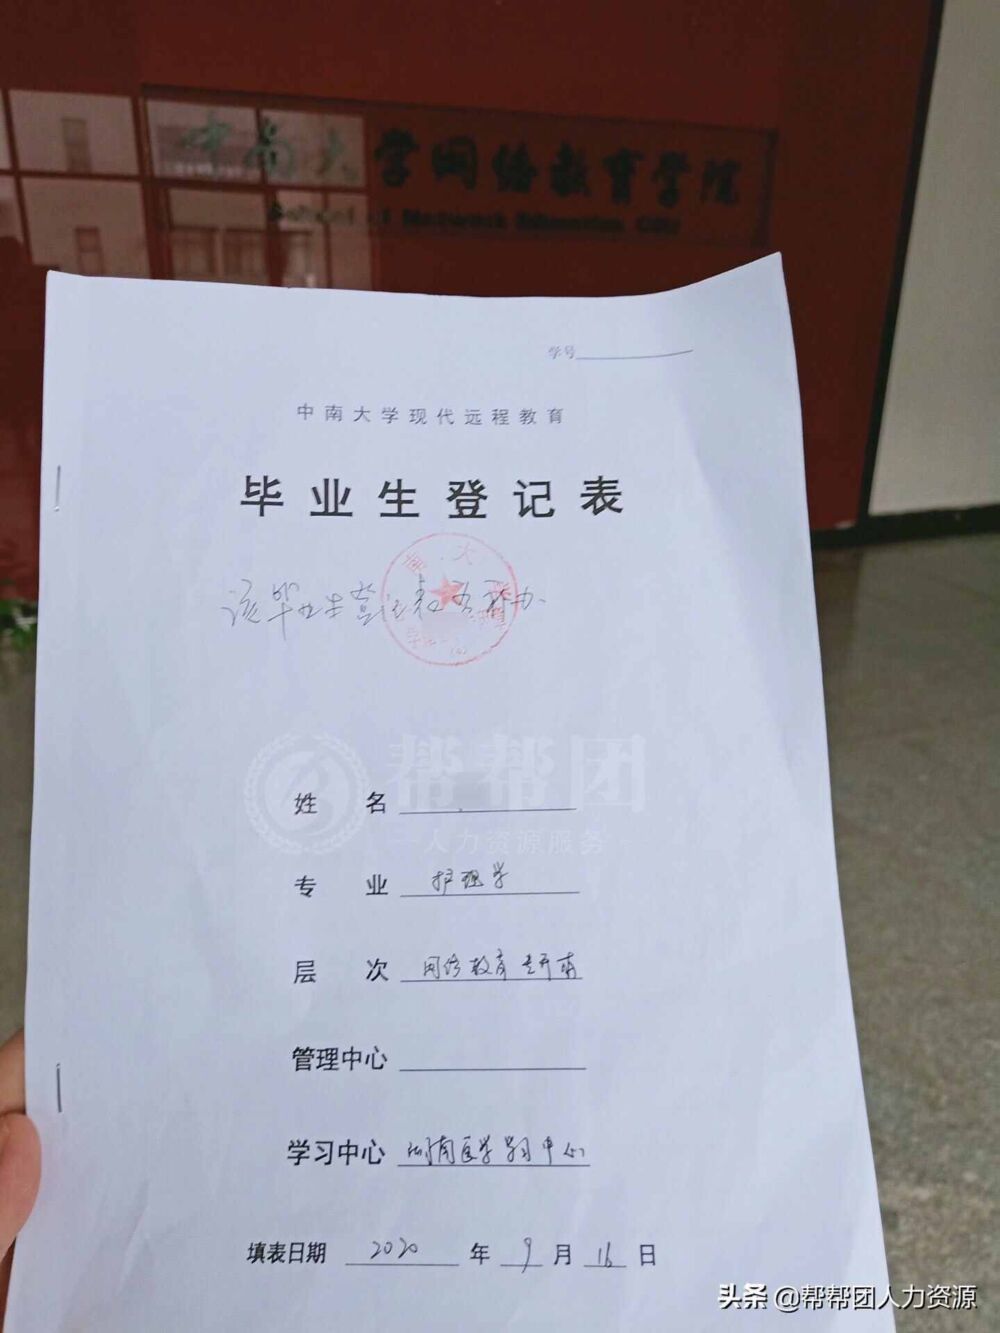 中南大学网络教育学院
School of Network Education, CSU
学号
中南大学现代远程教育
毕业生登记表
该毕业生登记表为补办.
帮帮团
人力资源服务
姓名
专业 护理学
层次 网络教育专升本
管理中心
学习中心 湖南医学学习中心
填表日期 2020 年 9 月 16 日
头条 @帮帮团人力资源